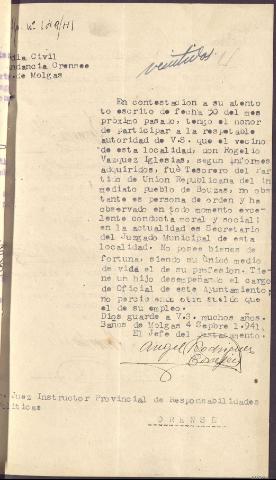 veintidos
dia Civil
ndancia Orense
to de Molgas
En contestacion a su atento
to escrito de fecha 20 del mes
próximo pasado, tengo el honor
de participar a la respetable
autoridad de V.S. que el vecino
de esta localidad, don Rogelio
Vazquez Iglesias, segun informes
adquiridos, fué Tesorero del Par
tido de Union Republicana del in
mediato pueblo de Bouzas, no obs
tante es persona de orden y ha
observado en todo momento exce
lente conducta moral y social;
en la actualidad es Secretario
del Juzgado Municipal de esta
localidad. No posee bienes de
fortuna, siendo su único medio
de vida el de su profesion. Tie
ne un hijo desempeñando el cargo
de Oficial de este Ayuntamiento
no percibe otro sueldo que
el de su empleo.
Dios guarde a V.S. muchos años.
Baños de Molgas 4 Sepbre 1.941
El Jefe del Destacamento.
Angel Rodriguez
Juez Instructor Provincial de Responsabilidades
olíticas
ORENSE